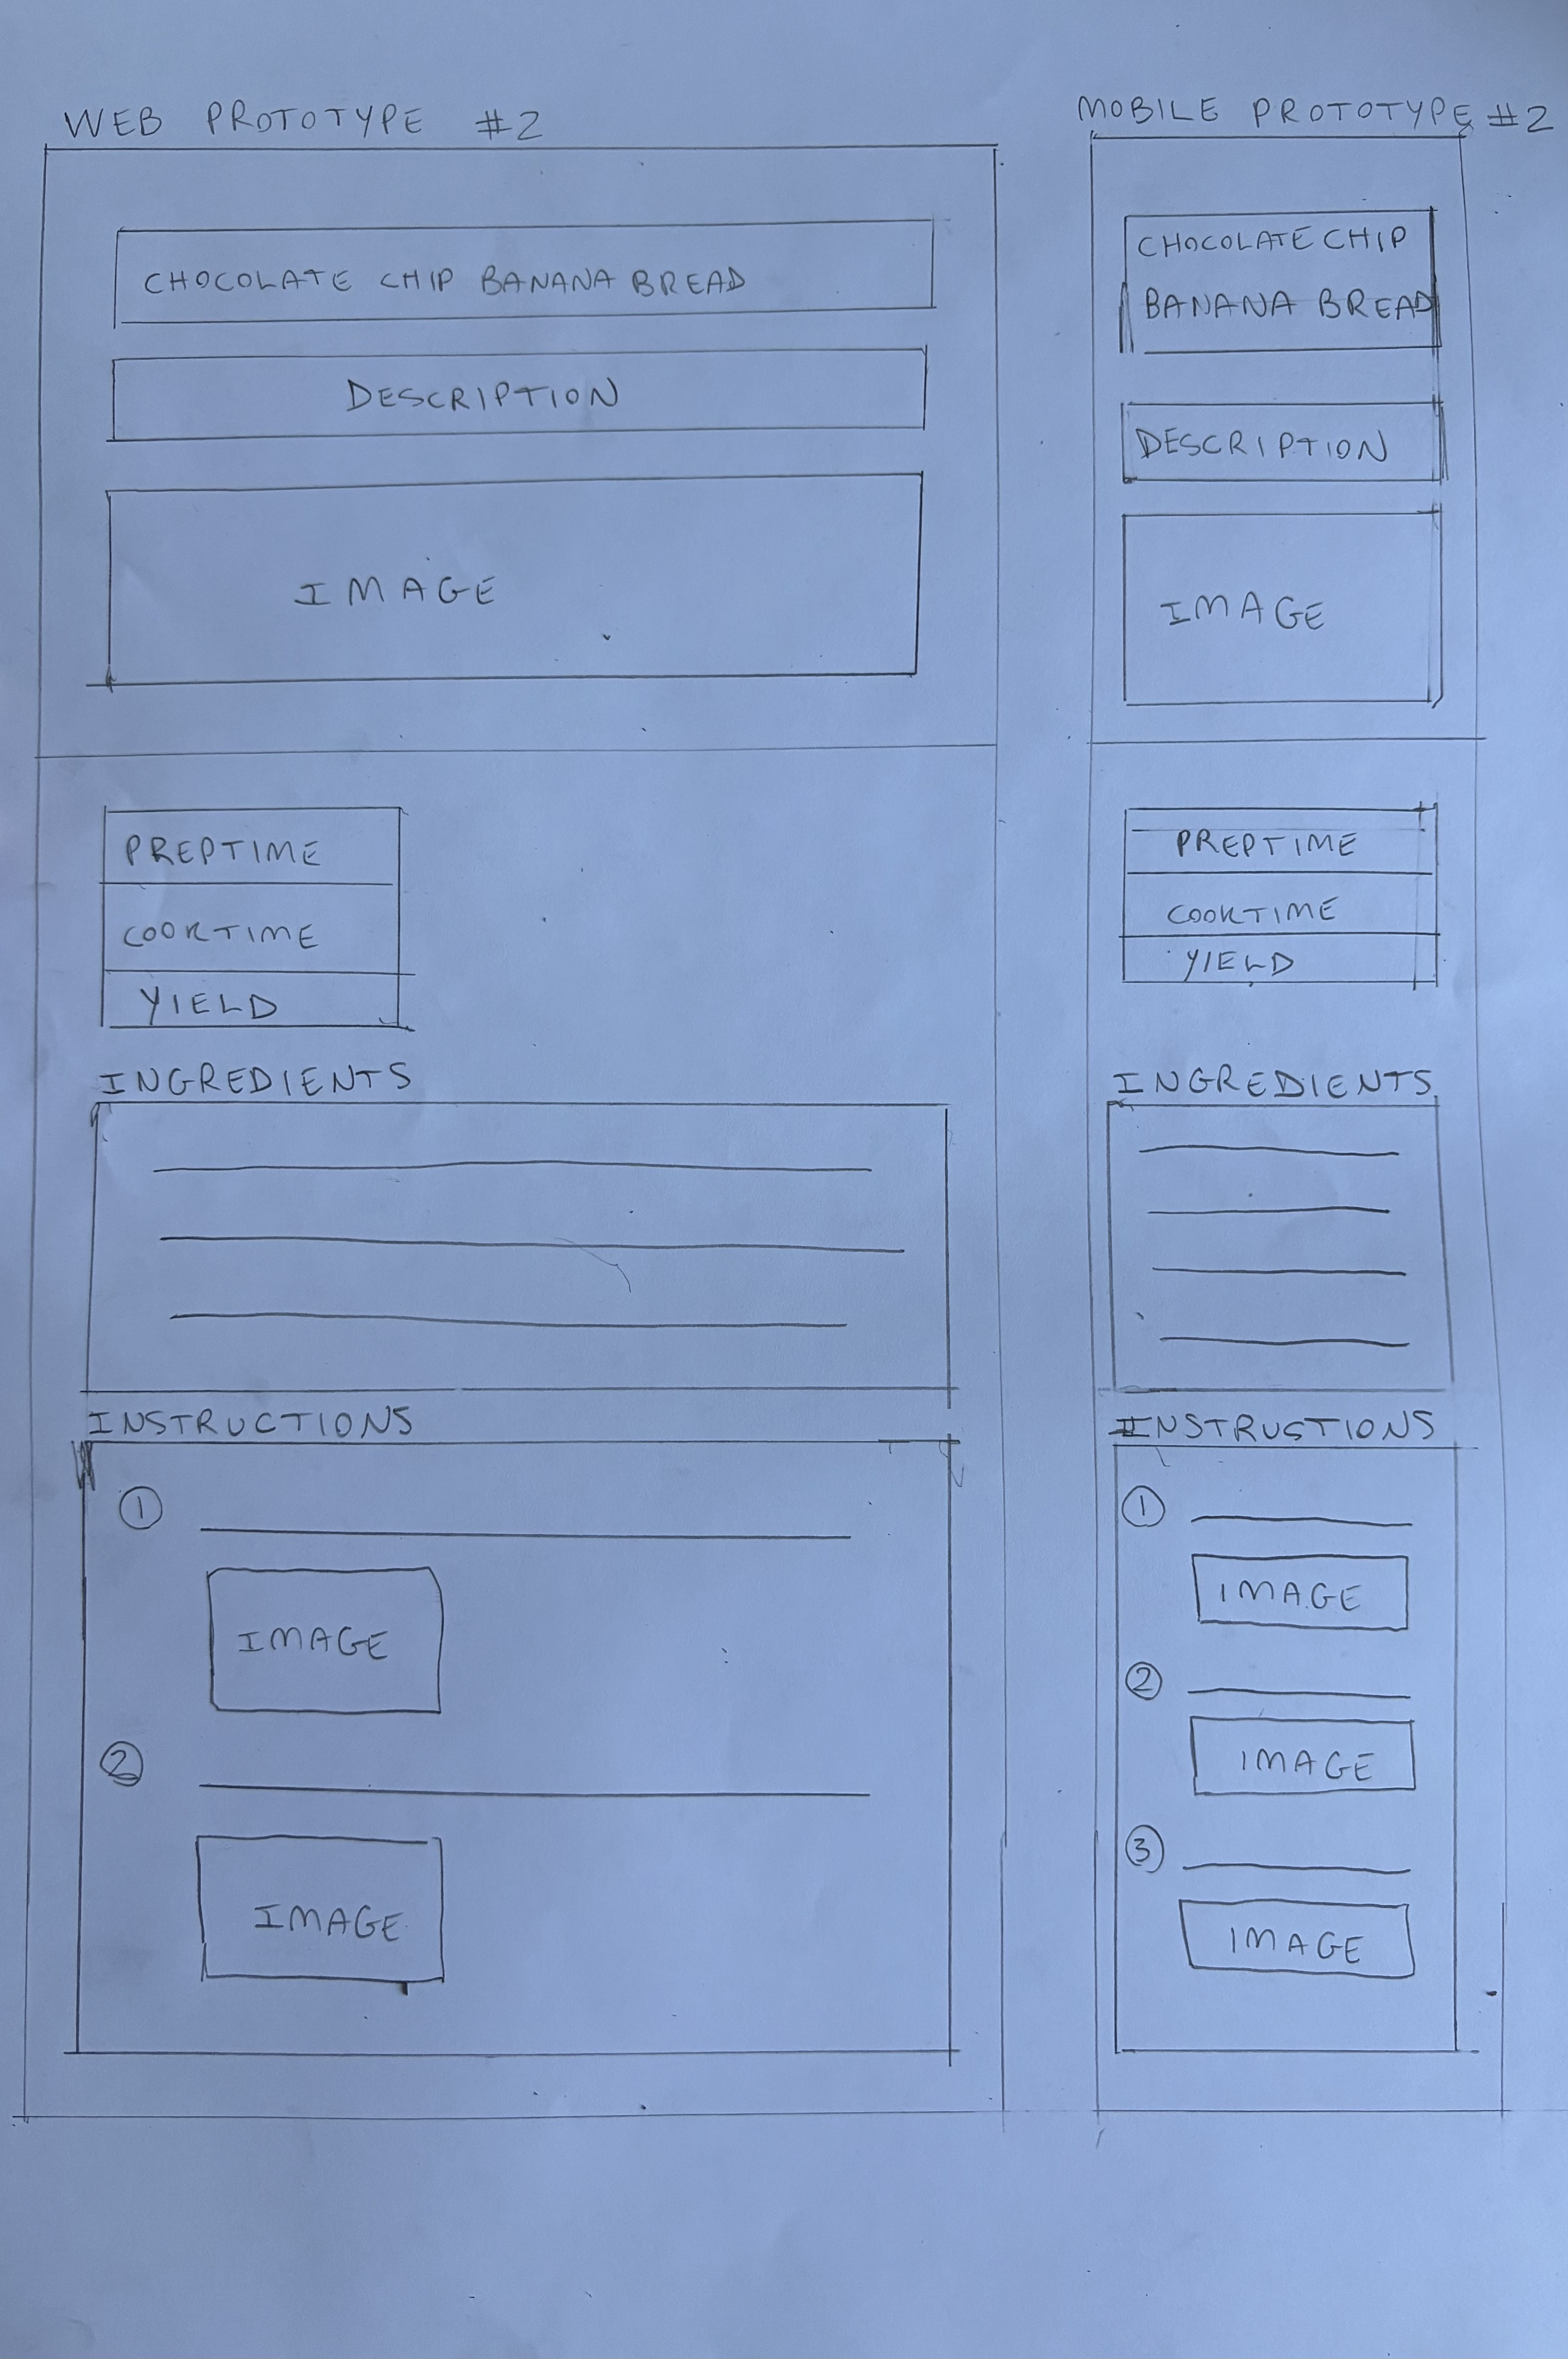 WEB PROTOTYPE #2
CHOCOLATE CHIP BANANA BREAD
DESCRIPTION
IMAGE
PREPTIME
COOKTIME
YIELD
INGREDIENTS
INSTRUCTIONS
1
IMAGE
2
IMAGE
MOBILE PROTOTYPE #2
CHOCOLATE CHIP
BANANA BREAD
DESCRIPTION
IMAGE
PREPTIME
COOKTIME
YIELD
INGREDIENTS
INSTRUSTIONS
1
IMAGE
2
IMAGE
3
IMAGE